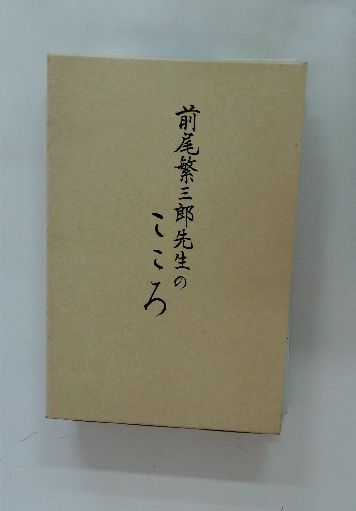 前尾繁三郎先生の
こころ